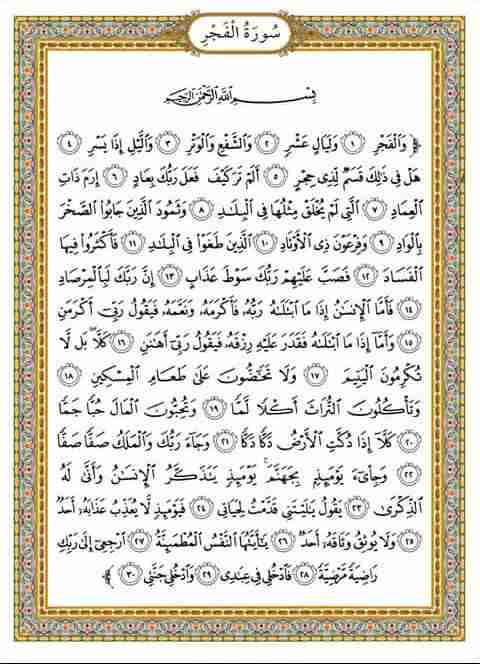 سُورَةُ الْفَجْرِ
بِسْمِ اللَّهِ الرَّحْمَٰنِ الرَّحِيمِ
﴿ وَالْفَجْرِ ١ وَلَيَالٍ عَشْرٍ ٢ وَالشَّفْعِ وَالْوَتْرِ ٣ وَاللَّيْلِ إِذَا يَسْرِ ٤
هَلْ فِي ذَٰلِكَ قَسَمٌ لِّذِي حِجْرٍ ٥ أَلَمْ تَرَ كَيْفَ فَعَلَ رَبُّكَ بِعَادٍ ٦ إِرَمَ ذَاتِ
الْعِمَادِ ٧ الَّتِي لَمْ يُخْلَقْ مِثْلُهَا فِي الْبِلَادِ ٨ وَثَمُودَ الَّذِينَ جَابُوا الصَّخْرَ
بِالْوَادِ ٩ وَفِرْعَوْنَ ذِي الْأَوْتَادِ ١٠ الَّذِينَ طَغَوْا فِي الْبِلَادِ ١١ فَأَكْثَرُوا فِيهَا
الْفَسَادَ ١٢ فَصَبَّ عَلَيْهِمْ رَبُّكَ سَوْطَ عَذَابٍ ١٣ إِنَّ رَبَّكَ لَبِالْمِرْصَادِ
١٤ فَأَمَّا الْإِنسَانُ إِذَا مَا ابْتَلَاهُ رَبُّهُ فَأَكْرَمَهُ وَنَعَّمَهُ فَيَقُولُ رَبِّي أَكْرَمَنِ
١٥ وَأَمَّا إِذَا مَا ابْتَلَاهُ فَقَدَرَ عَلَيْهِ رِزْقَهُ فَيَقُولُ رَبِّي أَهَانَنِ ١٦ كَلَّا بَل لَّا
تُكْرِمُونَ الْيَتِيمَ ١٧ وَلَا تَحَاضُّونَ عَلَىٰ طَعَامِ الْمِسْكِينِ ١٨
وَتَأْكُلُونَ التُّرَاثَ أَكْلًا لَّمًّا ١٩ وَتُحِبُّونَ الْمَالَ حُبًّا جَمًّا
٢٠ كَلَّا إِذَا دُكَّتِ الْأَرْضُ دَكًّا دَكًّا ٢١ وَجَاءَ رَبُّكَ وَالْمَلَكُ صَفًّا صَفًّا
٢٢ وَجِاْيٓءَ يَوْمَئِذٍ بِجَهَنَّمَ ۚ يَوْمَئِذٍ يَتَذَكَّرُ الْإِنسَانُ وَأَنَّىٰ لَهُ
الذِّكْرَىٰ ٢٣ يَقُولُ يَا لَيْتَنِي قَدَّمْتُ لِحَيَاتِي ٢٤ فَيَوْمَئِذٍ لَّا يُعَذِّبُ عَذَابَهُ أَحَدٌ
٢٥ وَلَا يُوثِقُ وَثَاقَهُ أَحَدٌ ٢٦ يَا أَيَّتُهَا النَّفْسُ الْمُطْمَئِنَّةُ ٢٧ ارْجِعِي إِلَىٰ رَبِّكِ
رَاضِيَةً مَّرْضِيَّةً ٢٨ فَادْخُلِي فِي عِبَادِي ٢٩ وَادْخُلِي جَنَّتِي ٣٠ ﴾